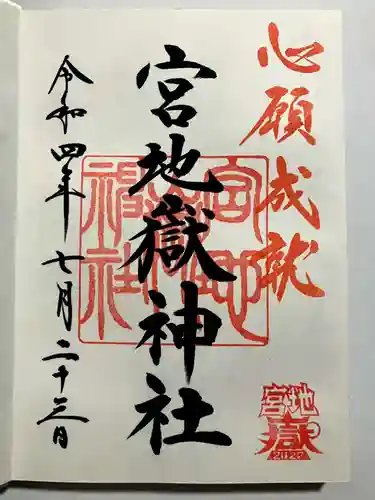 心願成就
宮地嶽神社
令和四年七月二十三日
宮地嶽神社
宮地嶽